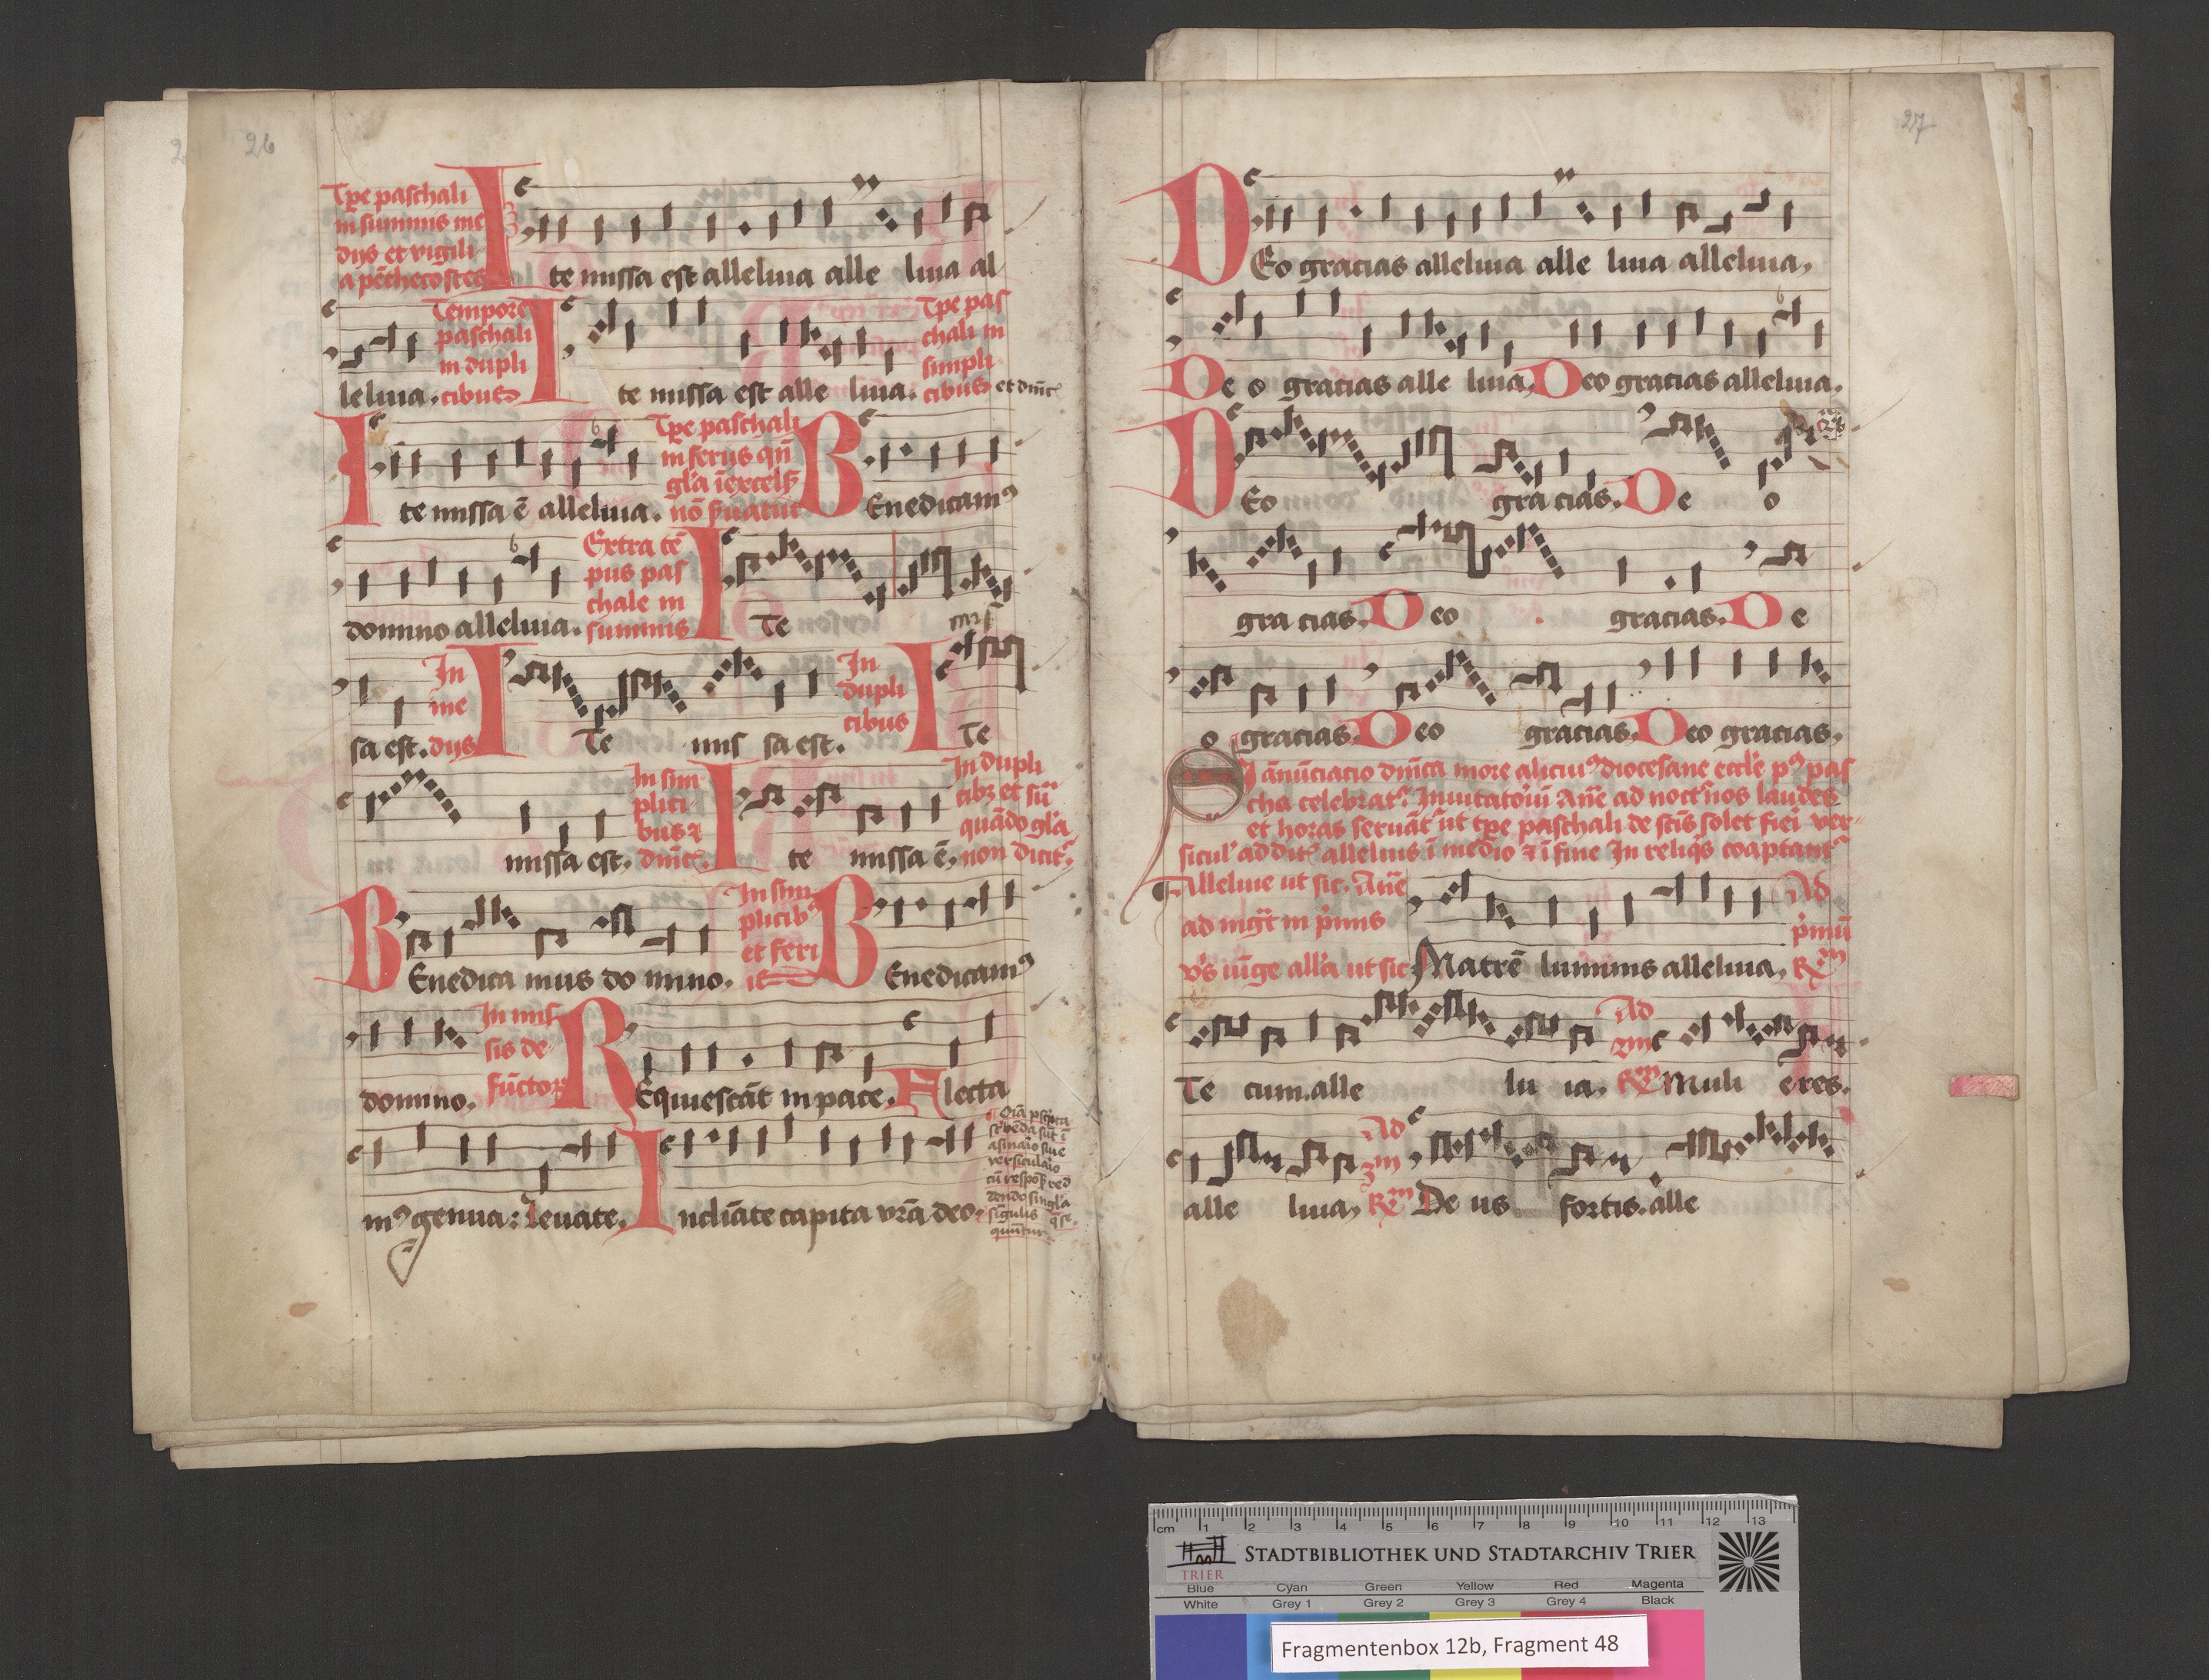 26
Tpe paschali
in summis me
dijs et vigili
a pēthecostes
Ite missa est alleluia alle luia al
leluia.
Tempore
paschali
in dupli
cibus
Ite missa est alle luia.
Tpe pas
chali in
simpli
cibus et dnicꝭ
Ite missa ē alleluia.
Tpe paschali
in ferijs qn̄
gl'a ī excelsꝭ
nō
BEnedicamꝰ
domino alleluia.
Extra tē
pus pas
chale in
summis
ITe mis
sa est.
In
me
dijs
ITe mis sa est.
In
dupli
cibus
ITe
missa est.
In sim
plici
bus
Ite missa ē.
In dupli
cibꝫ et
quādo gl'a
non dicit
BEnedica mus do mino.
In sim
plicibꝰ
et feri
is
BEnedicamꝰ
domino.
In mis
sis de
fūctoꝝ
REquiescāt in pace. Flecta
mꝰ genua: Leuate. Incliāte capita vrā deo.
27
DEo gracias alleluia alle luia alleluia,
De o gracias alle luia, Deo gracias alleluia.
DEo gra cias. De o
gra cias. Deo gracias. De
o gracias. Deo gracias. Deo gracias.
Si ānūciacio dnīca more alicuiꝰ diocesane eccl'e pꝰ pas
cha celebrat. Inuitatoiū Añe ad noct'nos laudes
et horas seruāt ut tpe paschali de sctīs solet fieri ver
sicul' addit alleluia ī medio ī fine In reliqꝭ coaptant
Alleluie ut sic. Añe
ad mgt in primis
vs iūge all'a ut sic Matrē luminis alleluia,
Ad
pmū
Rm
Te cum. alle lu ia,
Ad
Rm Muli eres.
alle luia,
Ad
3m
Rm De us fortis. alle
cm 1 2 3 4 5 6 7 8 9 10 11 12 13
TRIER
STADTBIBLIOTHEK UND STADTARCHIV TRIER
Blue Cyan Green Yellow Red Magenta
White Grey 1 Grey 2 Grey 3 Grey 4 Black
Fragmentenbox 12b, Fragment 48